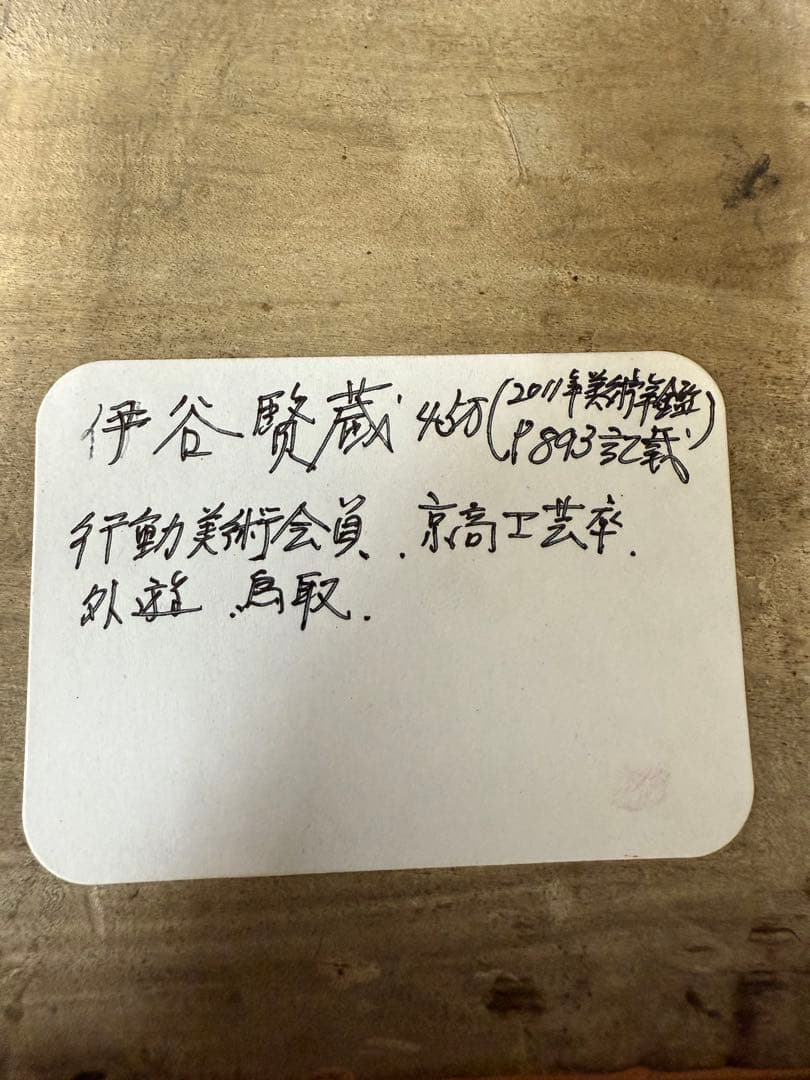 伊谷賢蔵 45万(2011年美術年鑑
P893記載)
行動美術会員、京高工芸卒.
外遊、鳥取.